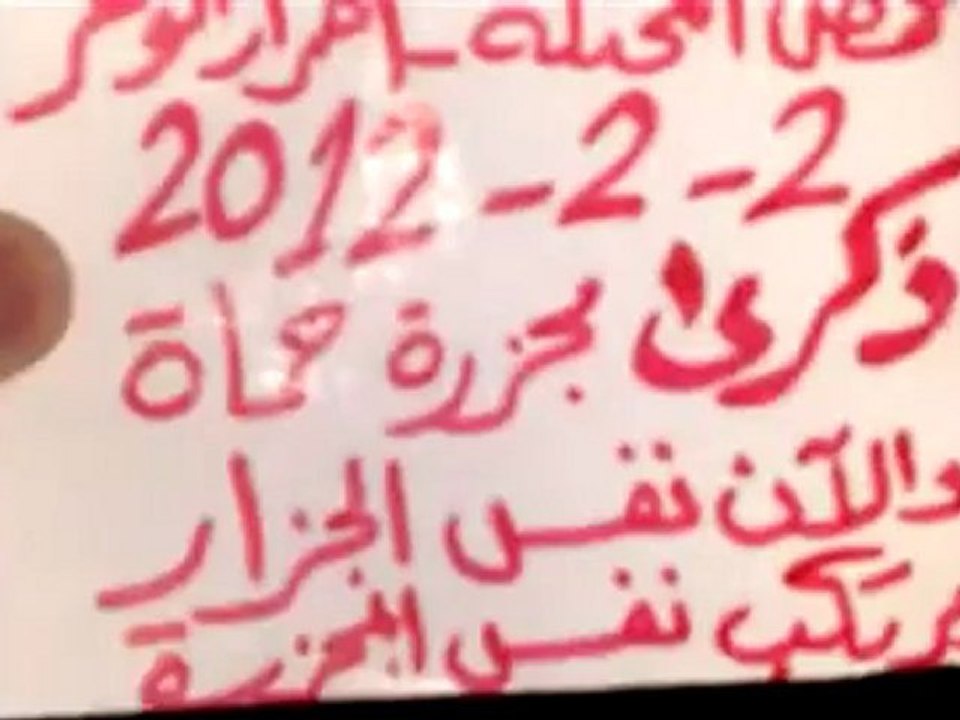 حمص المحتلة - احرار الوعر
2012 - 2 - 2
ذكرى مجزرة حماة
والآن نفس الجزار
يرتكب نفس المجزرة